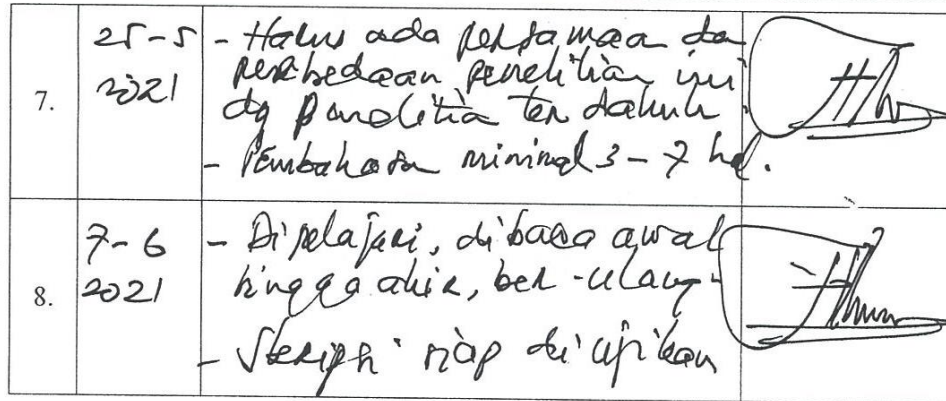 7.
25-5
2021
- Harus ada persamaan dan
perbedaan penelitian ini
dg penelitian terdahulu
- Pembahasan minimal 3-7 hal.
8.
7-6
2021
- Dipelajari, dibaca awal
hingga akhir, ber-ulang-
- Skripsi siap di ujikan